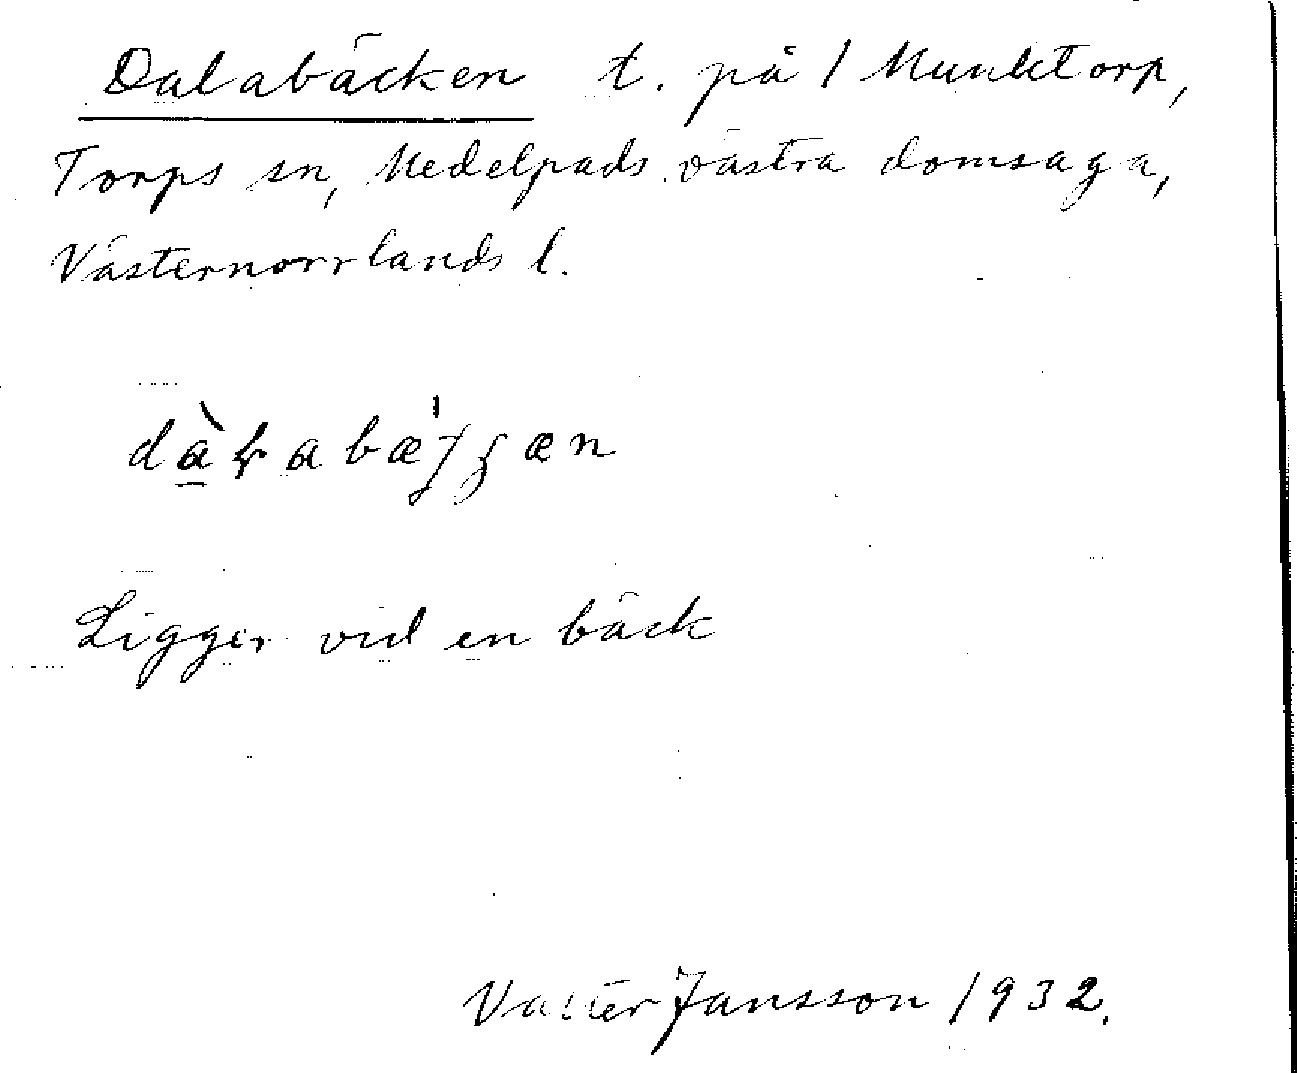 Dalabäcken t. på 1 Munktorp,
Torps sn, Medelpads västra domsaga,
Västernorrlands l.
Ligger vid en bäck
Valter Jansson 1932.